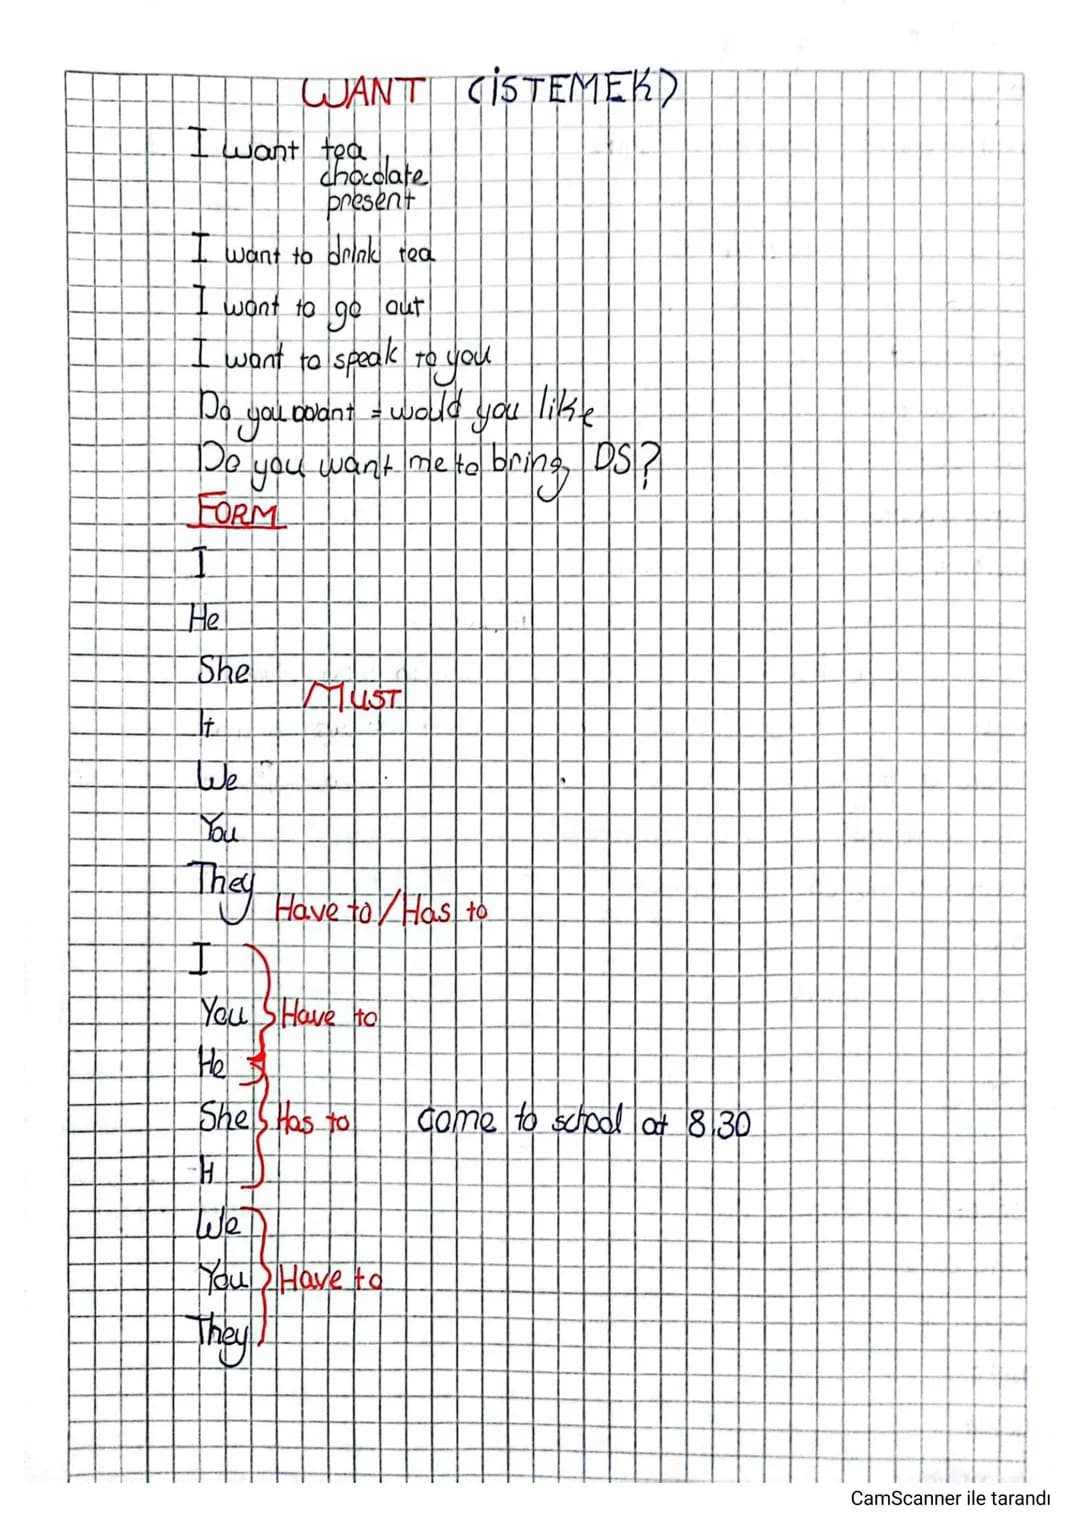 WANT (İSTEMEK)
I want tea
chocolate
present
I want to drink tea
I want to go out
I want to speak to you
Do you want = would you like
Do you want me to bring DS?
FORM
I
He
She
MUST
It
We
You
They
Have to / Has to
I
You Have to
He
She Has to come to school at 8.30
It
We
You Have to
They
CamScanner ile tarandı